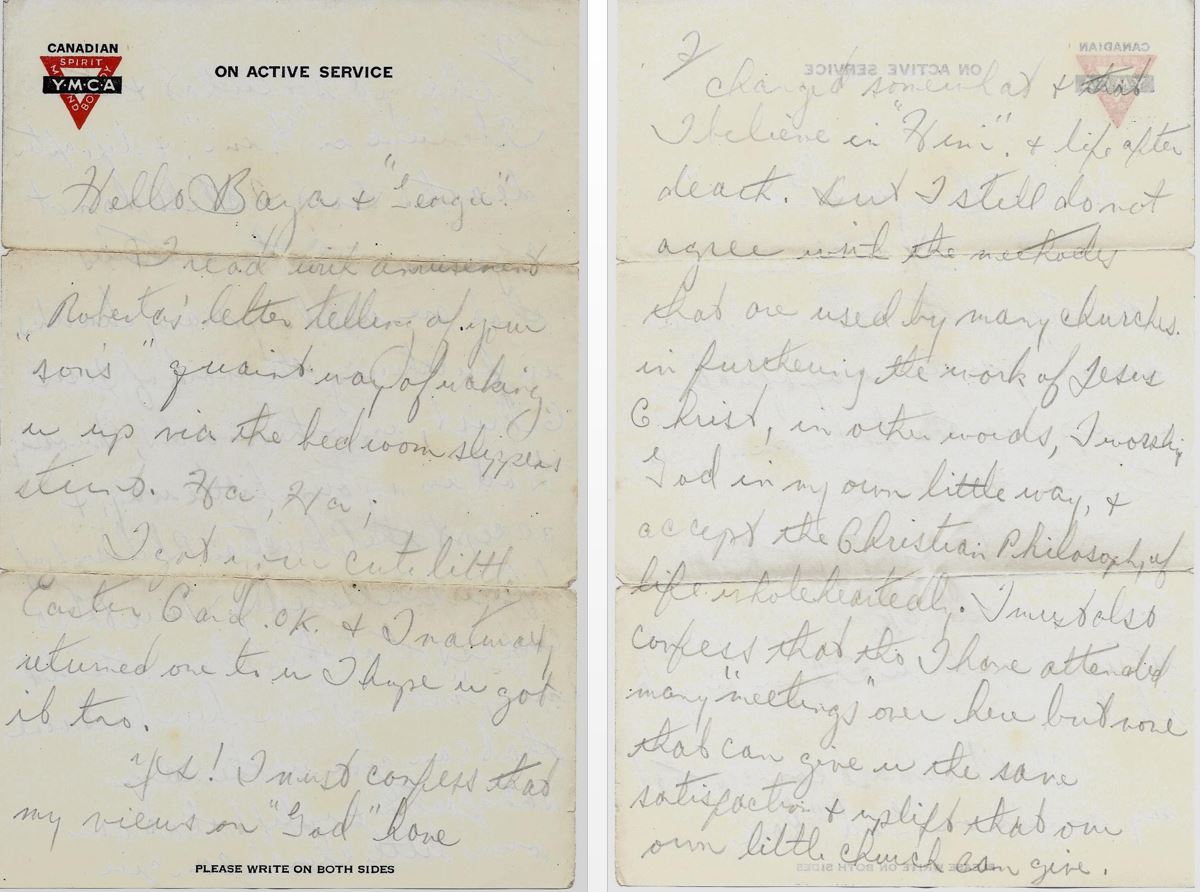 CANADIAN
SPIRIT
Y·M·C·A
MIND
BODY
ON ACTIVE SERVICE
Hello Baya & "Georgie".
I read with amusement
Roberta's letter telling of your
"son's" quaint way of waking
u up via the bedroom slippers
stunt. Ha, Ha;
I got your cute little
Easter Card. OK. & I naturaly
returned one to u I hope u got
it too.
Yes! I must confess that
my views on "God" have
PLEASE WRITE ON BOTH SIDES
2/
changed somewhat & that
I believe in "Him". & life after
death. But I still do not
agree with the methodes
that are used by many churches.
in furthering the work of Jesus
Christ, in other words, I worship
God in my own little way, &
accept the Christian Philosophy of
life wholeheartedly. I must also
confess that tho I have attended
many "meetings" over here but none
that can give u the same
satisfaction & uplift that our
own little church can give.